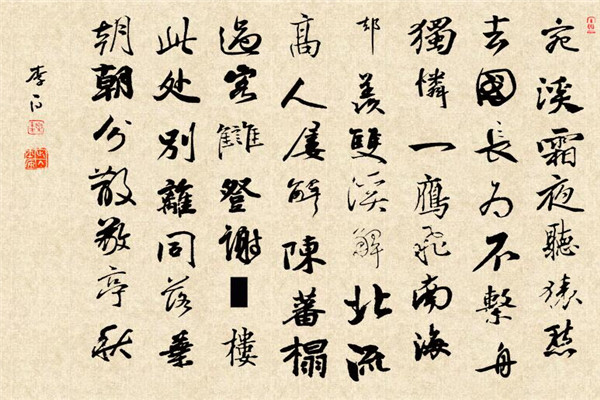 宛溪霜夜聽猿愁
去國長为不繫舟
獨憐一鷹飛南海
却羨雙溪解北流
高人屢解陳蕃榻
過客讎登謝樓
此处別離同落葉
朝朝分散敬亭秋
李白